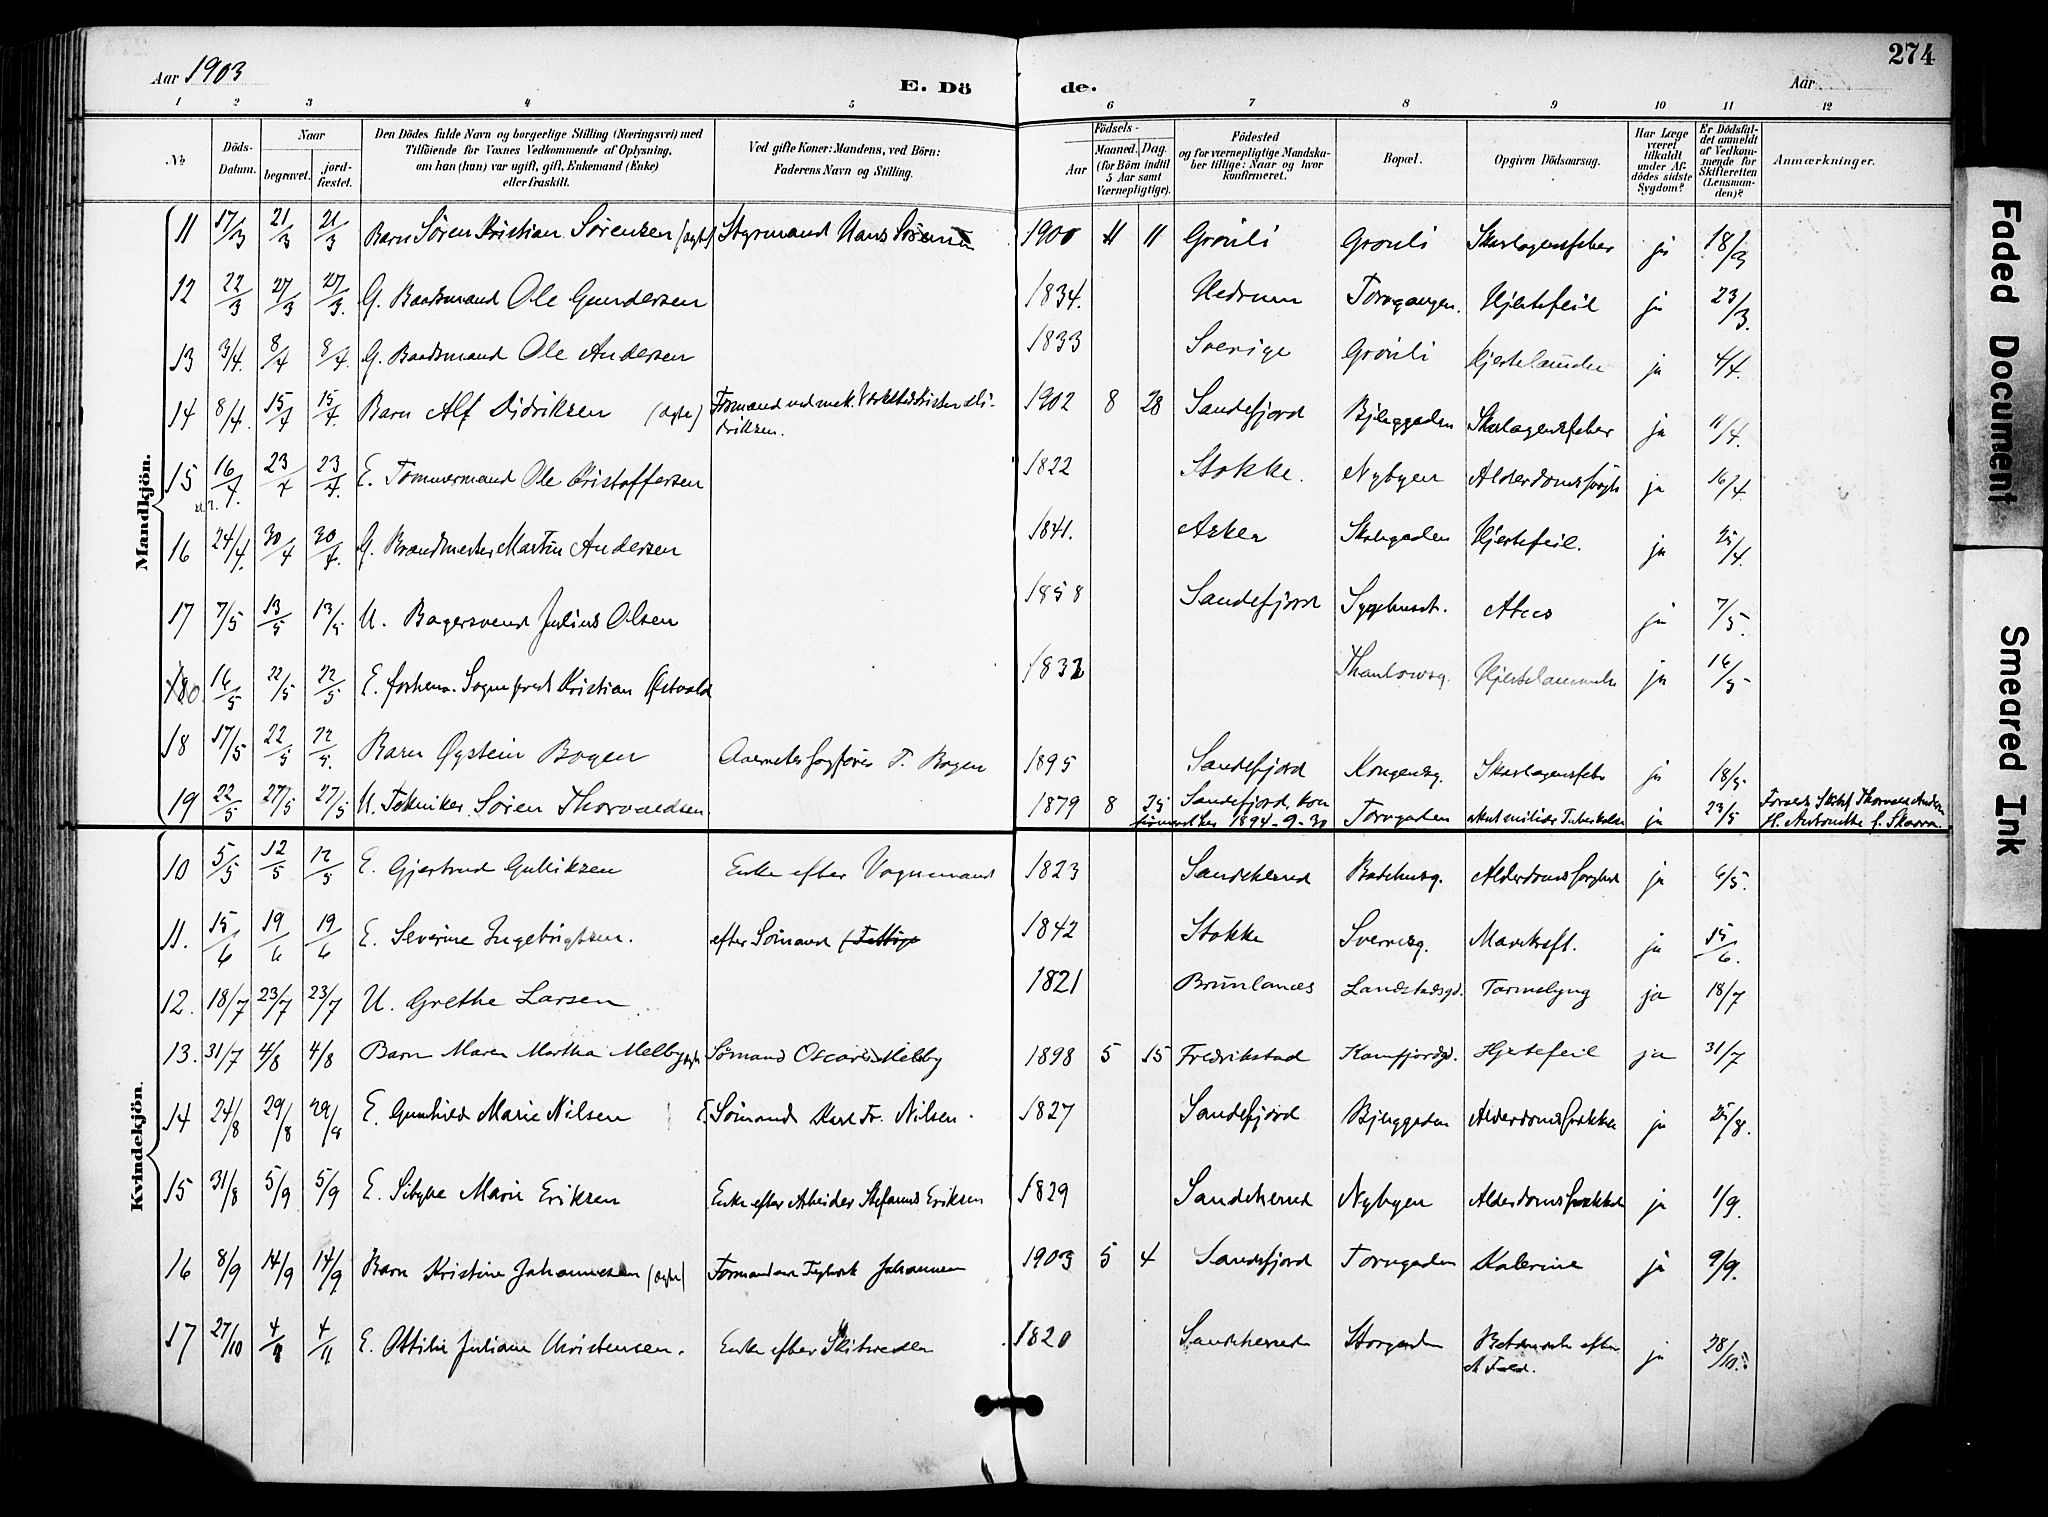 Aar 1903
E. Dö
de.
Aar
274
1 2 3 4 5 6 7 8 9 10 11 12
No
Döds-Datum.
Naar
begravet.
jord-fæstet.
Den Dödes fulde Navn og borgerlige Stilling (Næringsvei) med
Tilföiende for Voxnes Vedkommende af Oplysning,
om han (hun) var ugift, gift, Enkemand (Enke)
eller fraskilt.
Ved gifte Koner: Mandens, ved Börn:
Faderens Navn og Stilling.
Födsels-
Aar
Maaned. Dag.
(for Börn indtil
5 Aar samt
Værnepligtige).
Födested
og for værnepligtige Mandska-
ber tillige: Naar og hvor
konfirmeret.
Bopæl.
Opgiven Dödsaarsag.
Har Læge
været
tilkaldt
under Af-
dödes sidste
Sygdom?
Er Dödsfal-
det anmeldt
af Vedkom-
mende for
Skifteretten
(Lensman-
den)?
Anmærkninger.
Mandkjön.
11 17/3 21/3 21/3 Barn Søren Kristian Sørensen (ægte) Styrmand Hans 1900 11 Grønli Grønli Skarlagensfeber ja 18/3
12 22/3 27/3 27/3. G. Baadsmand Ole Gundersen 1834. Hedrum Torvgangen. Hjertefeil ja 23/3.
13 3/4. 8/4 8/4. G. Baadsmand Ole Andersen 1833 Sverige Grønli Hjertelammelse ja 4/4.
14 8/4. 15/4 15/4. Barn Alf Didriksen (ægte) Formand ved mek. Værksted Kristen Di-
driksen. 1902 8 28 Sandefjord Bjerggaden Skarlagensfeber ja 11/4.
15 16/4. 23/4 23/4. E. Tømmermand Ole Kristoffersen 1822 Stokke. Nybyen ja 16/4.
16 24/4. 30/4 30/4. G. Brandmester Martin Andersen 1841. Asker Skolegaden Hjertefeil. ja 25/4.
17 7/5 13/5 13/5 U. Bagersvend Julius Olsen 1858 Sandefjord Sygehuset. ja 7/5.
16/5 22/5 22/5 E. Kristian Østvold Thaulowsg. Hjertelammelse ja 16/5
18 17/5 22/5 22/5. Barn Øystein Bogen T. Bogen 1895 Sandefjord Kongensg. Skarlagensfeber ja 18/5.
19 22/5 27/5 27/5 U. Tekniker Søren Thorvaldsen 1879 8 25 Sandefjord, kon
firmeret 1894-9-30 Torvgaden ja 23/5
Kvindekjön.
10 5/5 12/5 12/5 E. Gjertrud Gulliksen Enke efter Vognmand 1823 Sandeherred Badehusg. ja 6/5.
11. 15/6 19/6 19/6 E. Severine Ingebrigtsen. efter Sømand 1842 Stokke Sverresg. Mavekræft. ja 15/6.
12. 18/7 23/7 23/7 U. Grethe Larsen 1821 Brunlanes Landstadsgd. Tarmslyng ja 18/7
13. 31/7 4/8 4/8 Barn Maren Martha Melby Sømand Oscar Melby 1898 5 15 Fredrikstad Kamfjordgd. Hjertefeil ja 31/7
14 24/8 29/8 29/8 E. Gunhild Marie Nilsen E. Sømand Karl Fr. Nilsen. 1827 Sandefjord Bjerggaden ja 25/8.
15 31/8 5/9 5/9 E. Marie Eriksen Enke efter Arbeider Stefanus Eriksen 1829 Sandeherred Nybyen ja 1/9.
16 8/9 14/9 14/9 Barn Kristine Johannesen (ægte) Johannesen 1903 5 4 Sandefjord Torvgaden Kolerine ja 9/9.
17 27/10 4 4/11 E. Ottilie Juliane Christensen. Enke efter 1820 Sandeherred Storgaden efter
et Fald. ja 28/10.
Faded Document
Smeared Ink